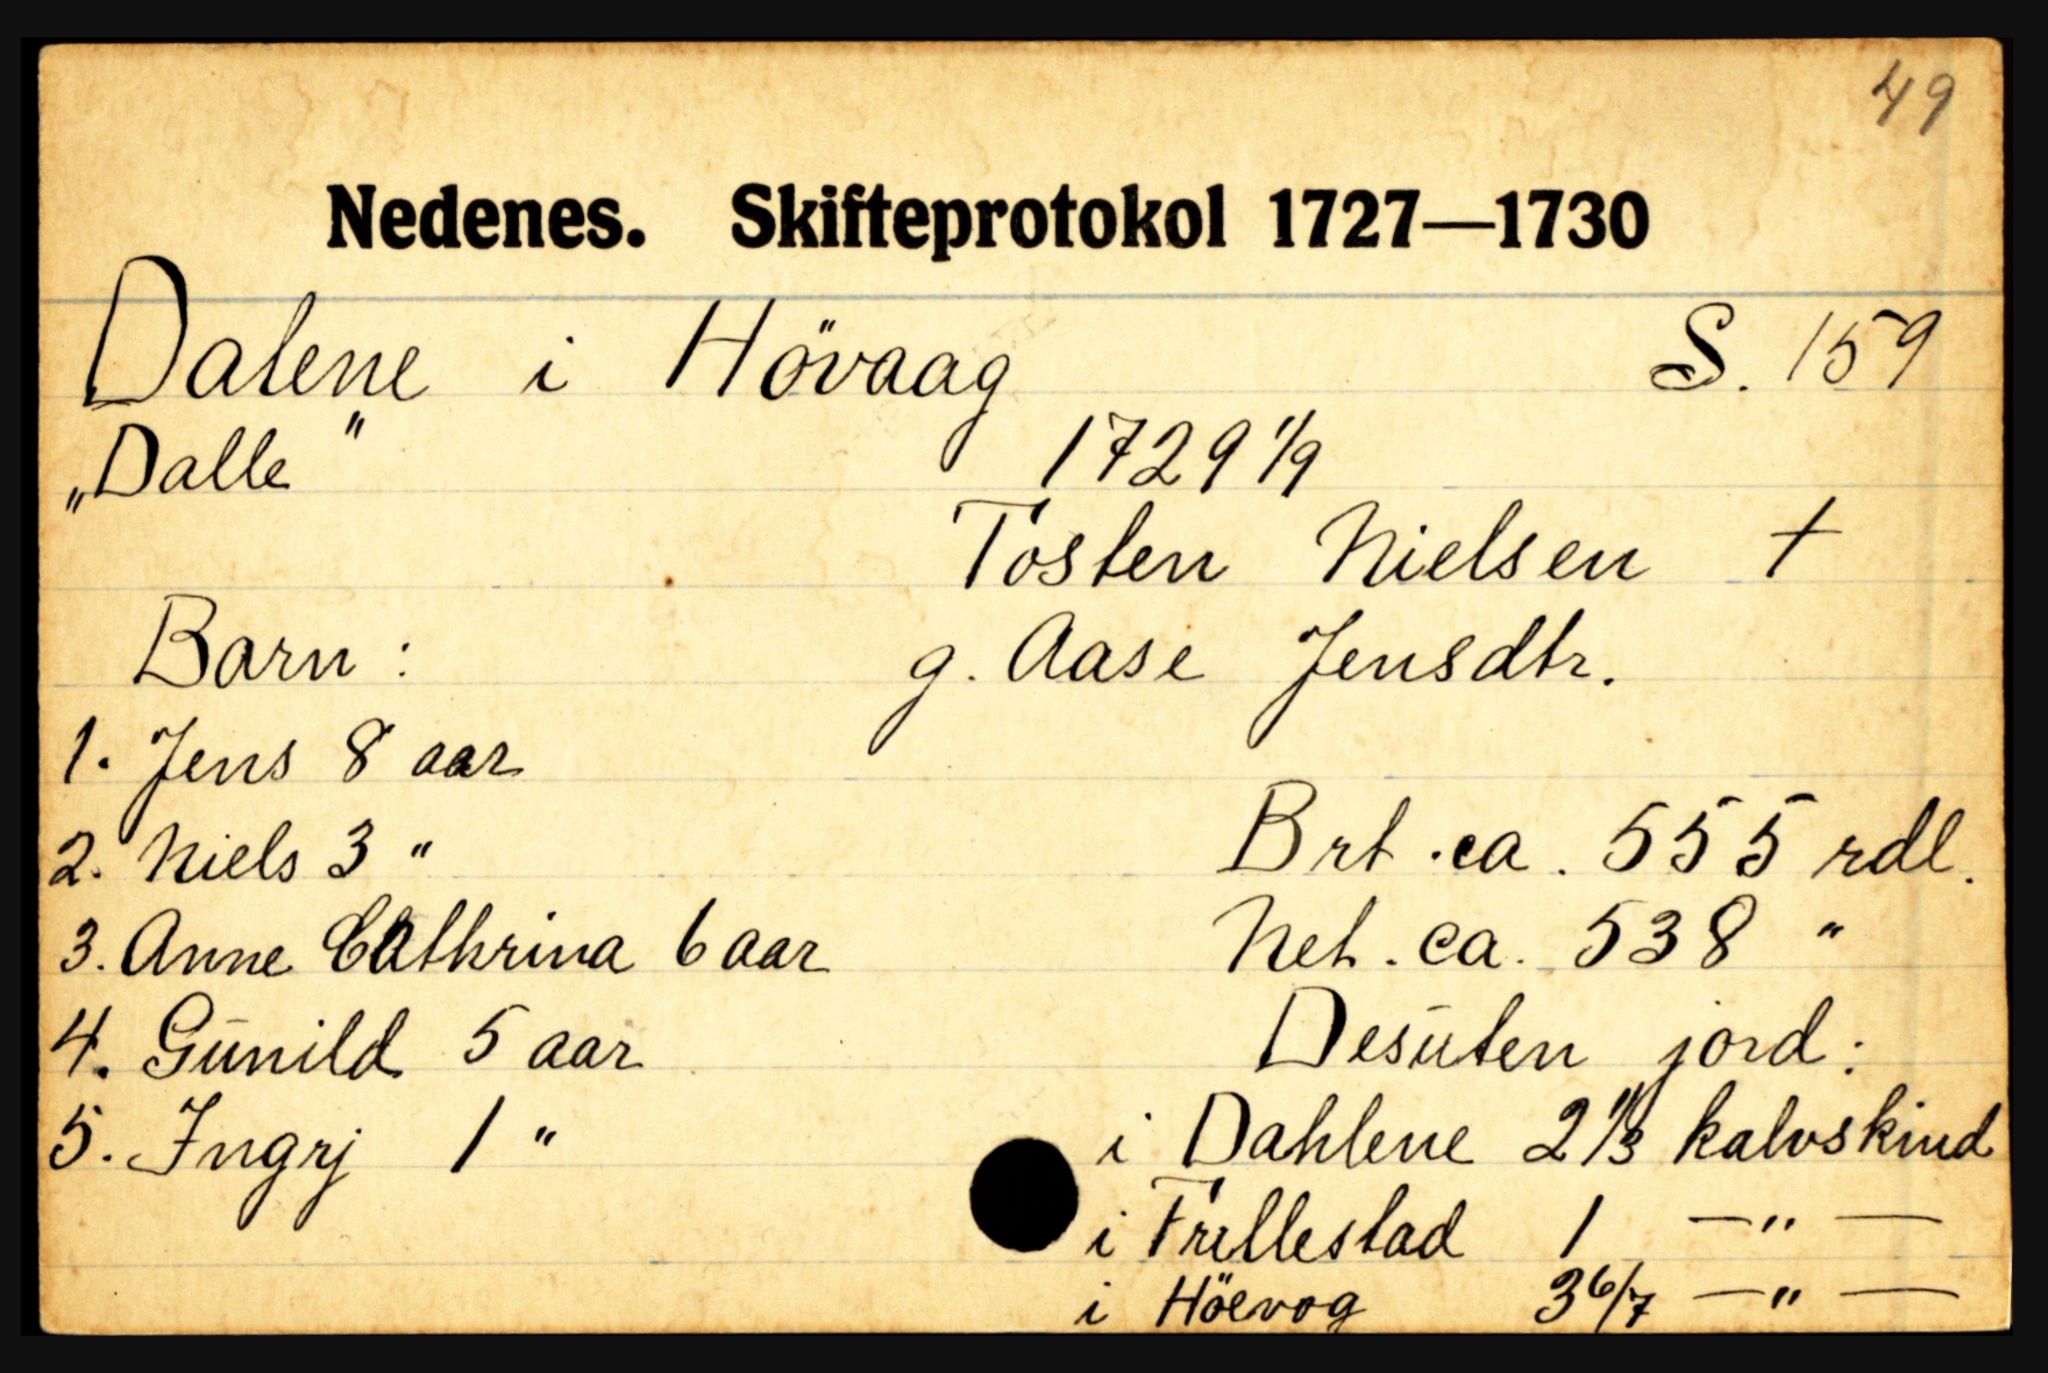 49
Nedenes. Skifteprotokol 1727—1730
Dalene i Hövaag S. 159
„Dalle" 1729 1/9
Tosten Nielsen †
Barn: g. Aase Jensdtr.
1. Jens 8 aar
2. Niels 3 " Brt. ca. 555 rdl.
3. Anne Cathrina 6 aar Net. ca. 538 "
4. Gūnild 5 aar Desūten jord:
5. Ingrj 1 " i Dahlene 2 1/3 kalvskind
i Trellestad 1 —"—
i Höevog 3 6/7 —"—